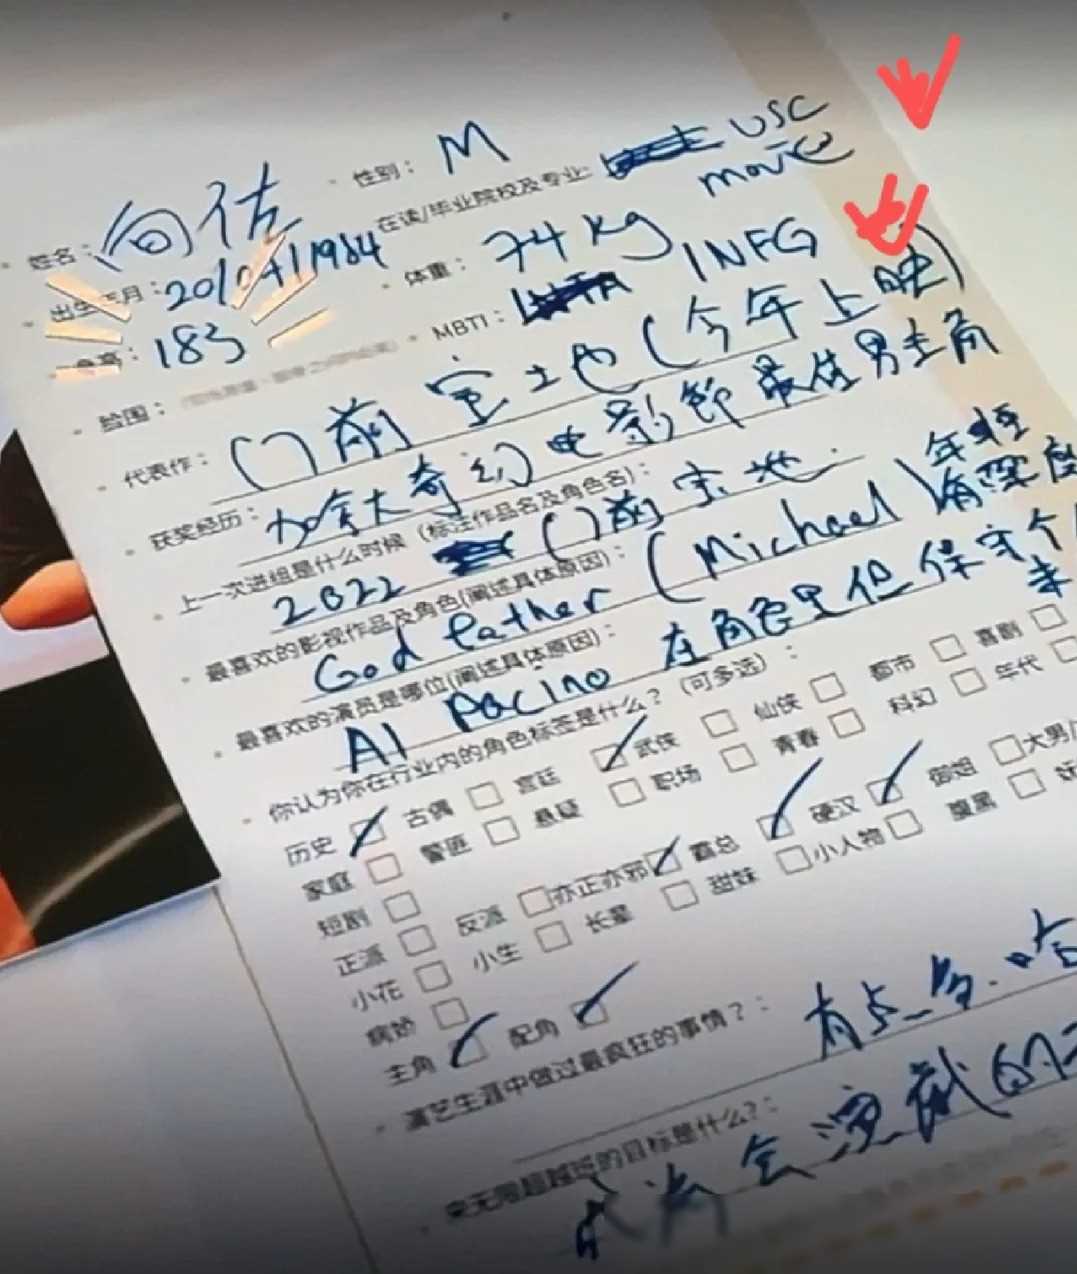 姓名：向佐 性别：M
在读/毕业院校及专业：USC movie
出生年月：20/04/1984 体重：74 kg
身高：183 MBTI：INFG
脸围：
代表作：门前宝地(今年上映)
获奖经历：加拿大奇幻电影節最佳男主角
上一次进组是什么时候（标注作品名及角色名）：
2022 门前宝地
最喜欢的影视作品及角色(阐述具体原因)：
God father (Michael) 年轻有深度
最喜欢的演员是哪位(阐述具体原因)：
Al Pacino 在角色里但保守个
你认为你在行业内的角色标签是什么？（可多选）：
历史 古偶 宫廷 武侠 仙侠 都市 喜剧
家庭 警匪 悬疑 职场 青春 科幻 年代
短剧
正派 反派 亦正亦邪 霸总 硬汉 御姐 大男/
小花 小生 长辈 甜妹 小人物 腹黑 妖
病娇
主角 配角
演艺生涯中做过最疯狂的事情？：有点多.哈
来无限超越班的目标是什么?：
成为会演戏的